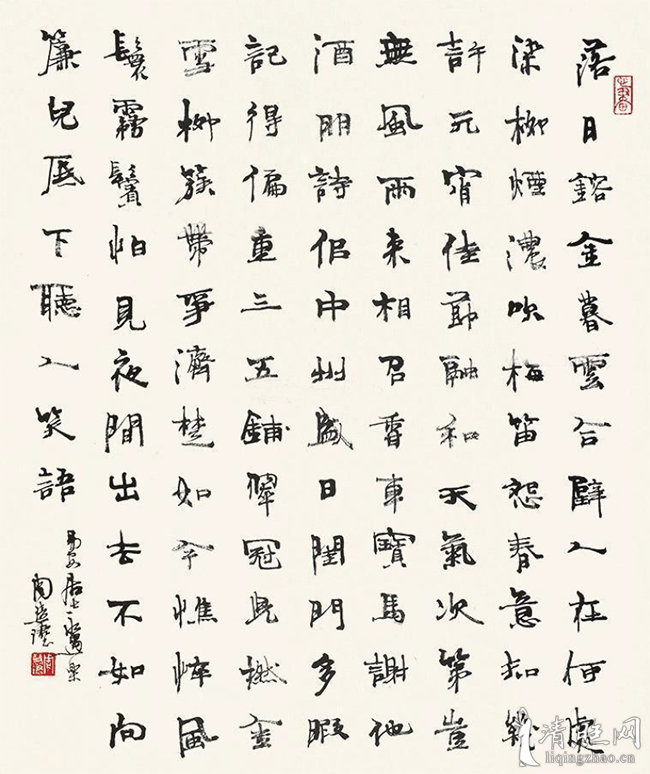 落日鎔金暮雲合璧人在何處
染柳煙濃吹梅笛怨春意知幾
許元宵佳節融和天氣次第豈
無風雨來相召香車寶馬謝他
酒朋詩侶中州盛日閨門多暇
記得偏重三五鋪翠冠兒撚金
雪柳簇帶爭濟楚如今憔悴風
鬟霧鬢怕見夜間出去不如向
簾兒底下聽人笑語
易安居士永遇樂
liqingzhao.cn